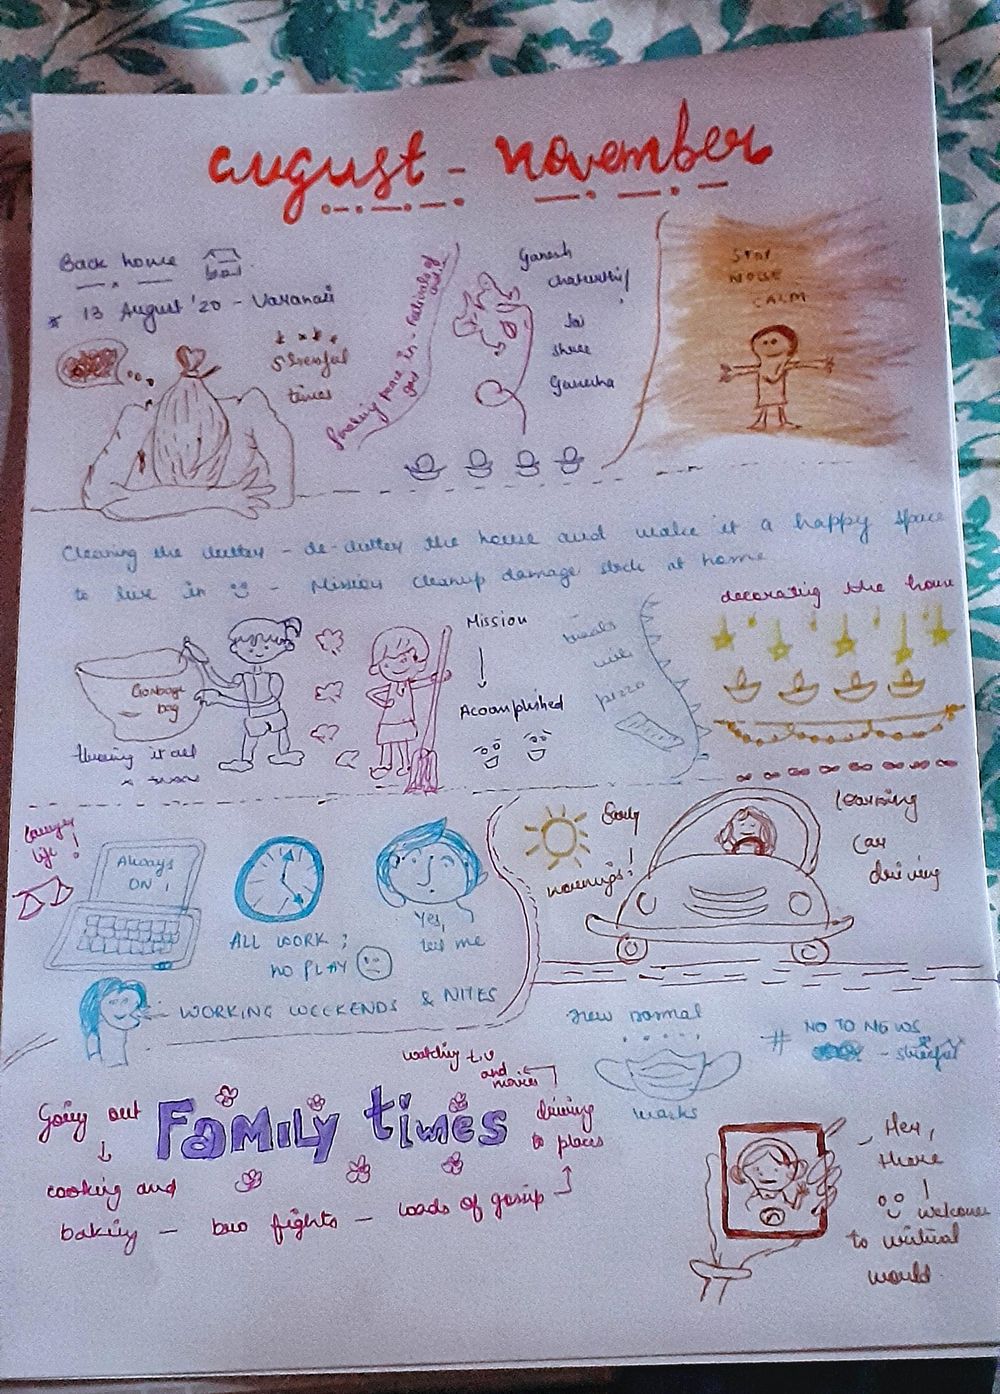 august - november
Back home
* 13 August '20 - Varanasi
stressful
times
Finding peace in - Festivals of
god
Ganesh
chaturthi!
Jai
shree
Ganesha
STAY
CALM
Cleaning the clutter - de-clutter the house and make it a happy space
to live in - Mission cleanup damage stuck at home
Garbage
bag
throwing it all
Mission
Accomplished
treats
with
pizza
decorating the house
lawyer
life!
Always
ON!
ALL WORK;
NO PLAY
Yes,
tell me
WORKING WEEKENDS & NITES
Early
mornings!
learning
car
driving
new normal
masks
# NO TO NEWS
- stressful
watching t.v
and
movies
Going out
Family times
driving
to places
cooking and
baking - bro fights - loads of gossip
Hey,
there
!
welcome
to virtual
world